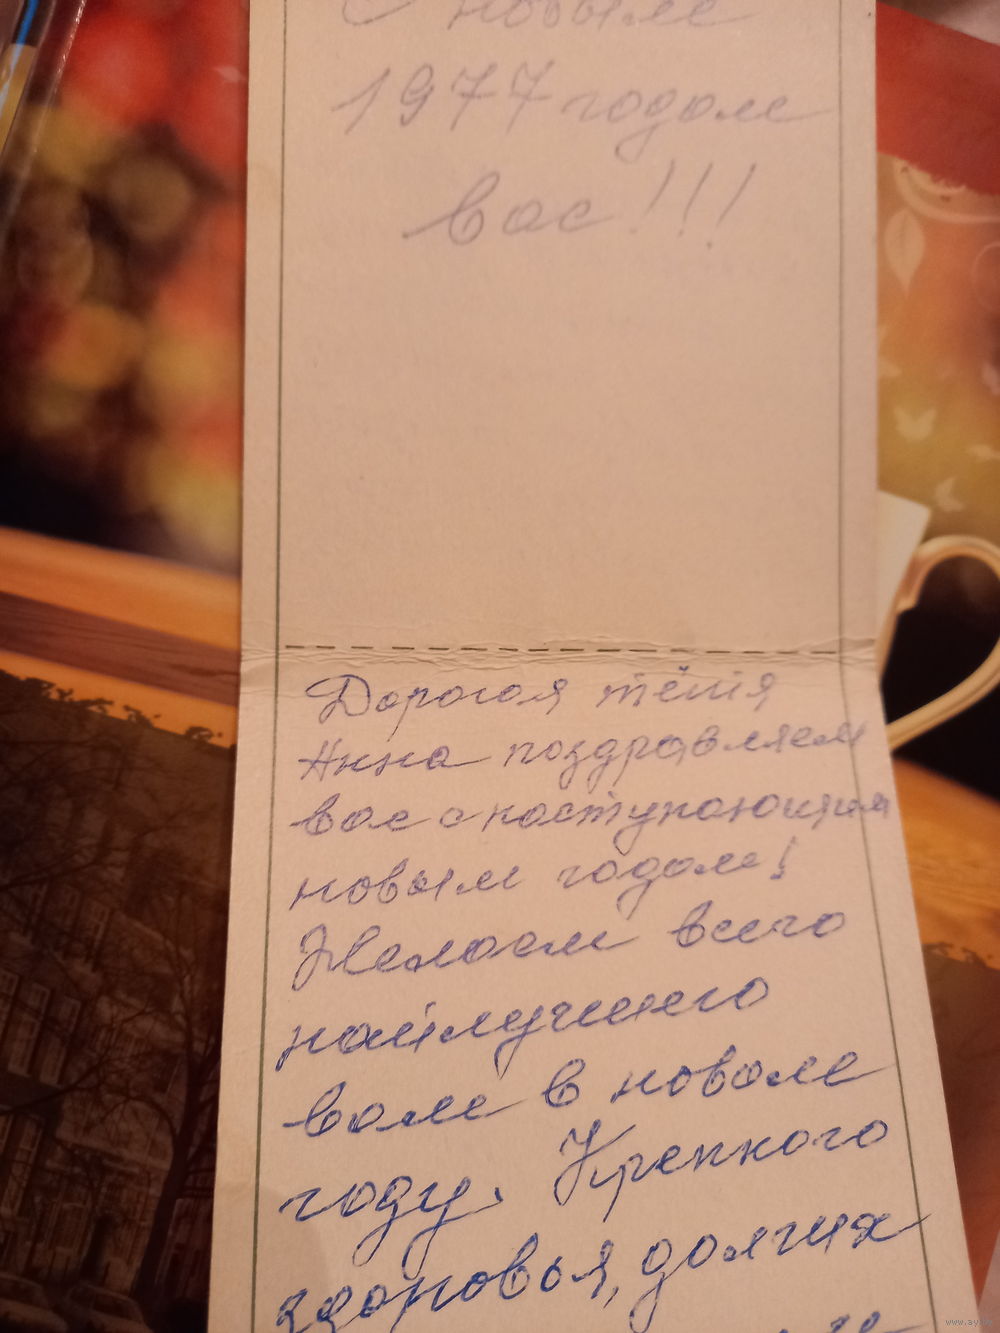 С новым
1977 годом
вас!!!
Дорогая тётя
Анна поздравляем
вас с наступающим
новым годом!
Желаем всего
найлучшего
вам в новом
году. Крепкого
здоровья, долгих